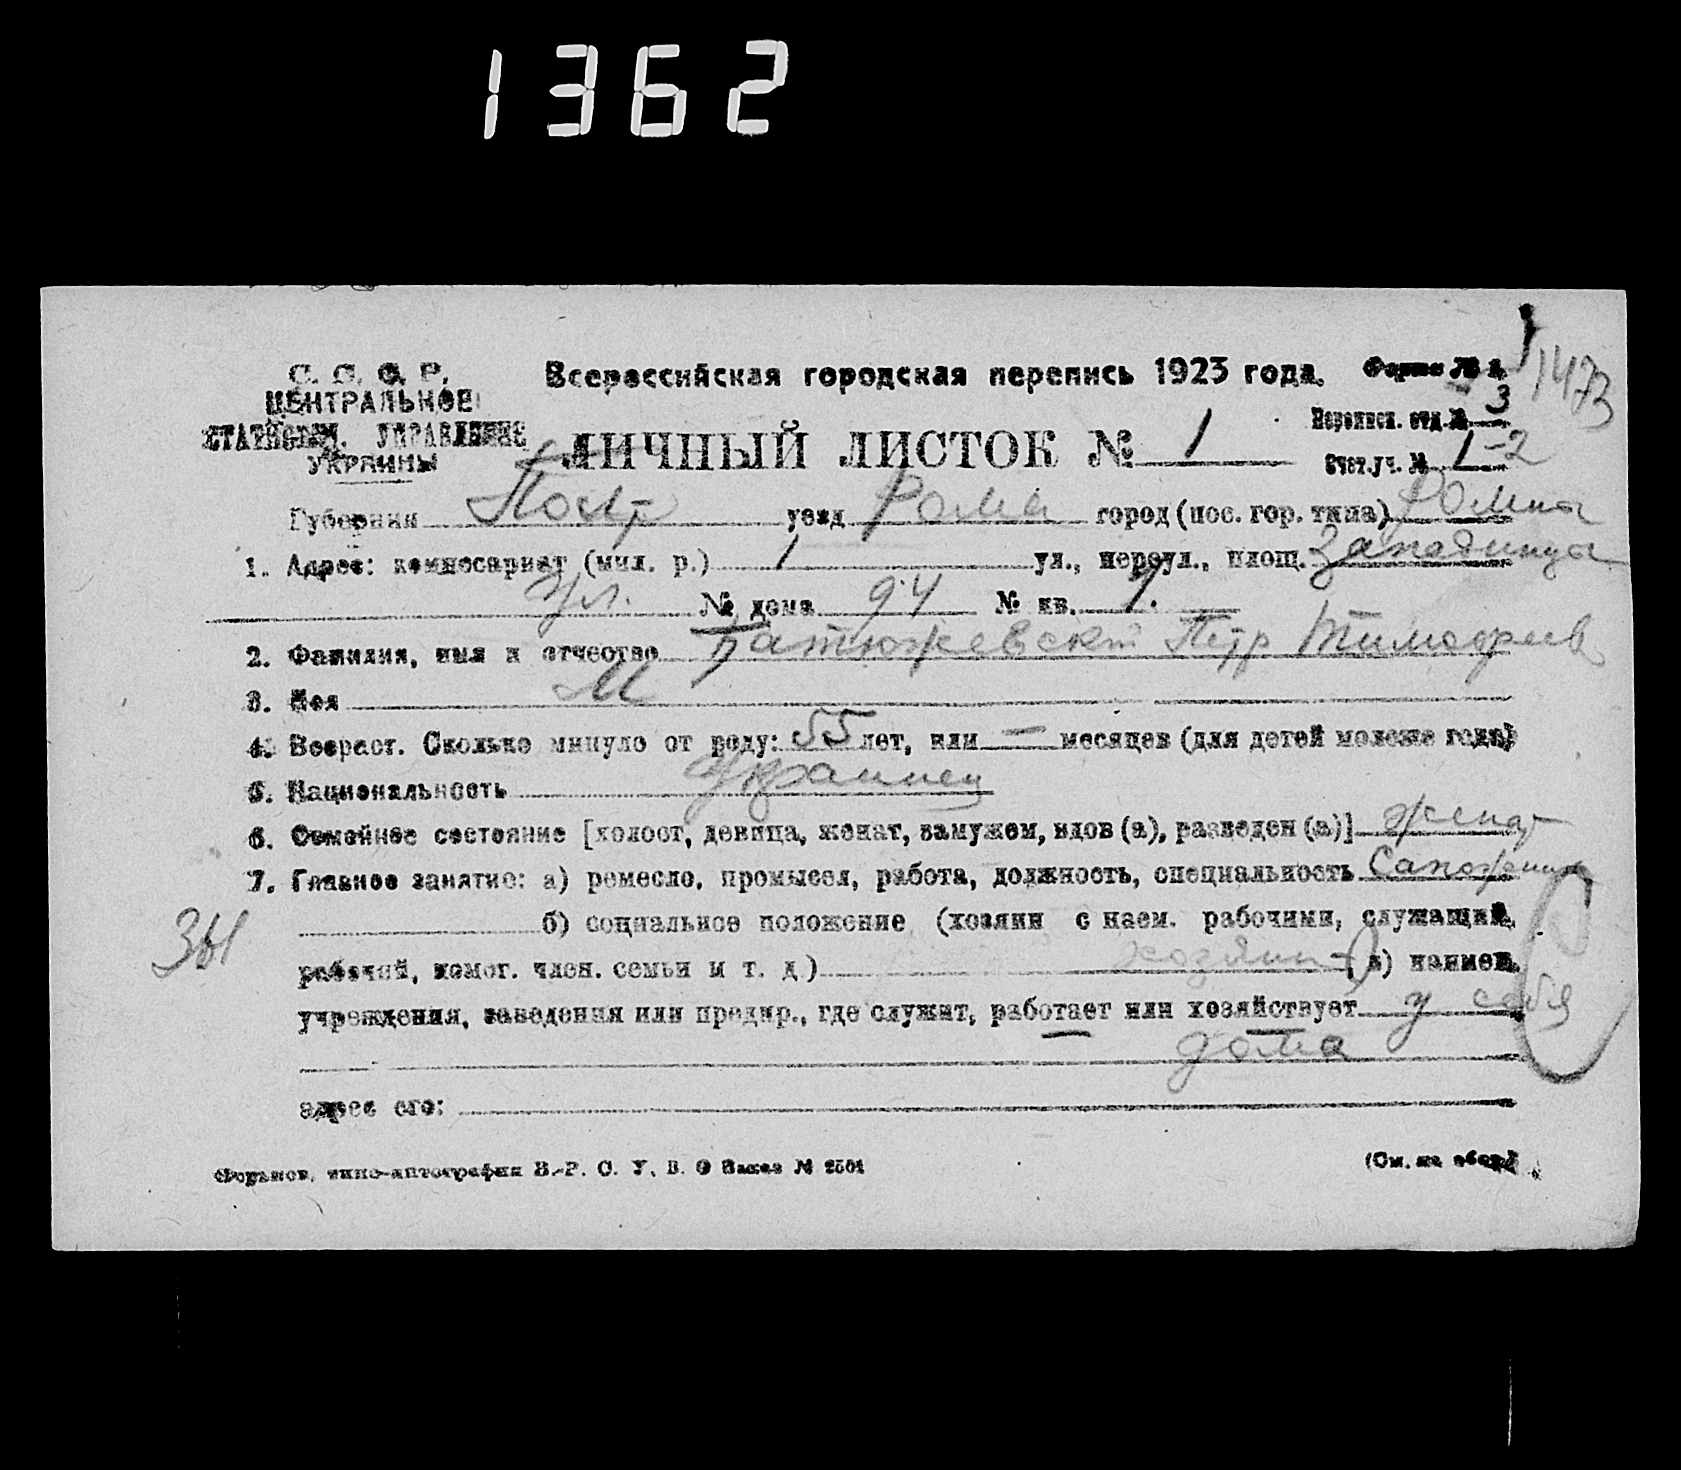 1362
С. С. С. Р.
ЦЕНТРАЛЬНОЕ
СТАТИСТИЧ. УПРАВЛЕНИЕ
УКРАИНЫ
Всероссийская городская перепись 1923 года.
Форма № 1.
1473
ЛИЧНЫЙ ЛИСТОК № 1
Перепис. отд. № 3
Счет. уч. № 1-2
Губерния Полт уезд Ромн город (пос. гор. типа) Ромны
1. Адрес: комиссариат (мил. р.) 1 ул., переул., площ. Западинца
ул. № дома 94 № кв. 1.
2. Фамилия, имя и отчество Петр Тимофеев
3. Пол М
4. Возраст. Сколько минуло от роду: 55 лет, или — месяцев (для детей моложе года)
5. Национальность Украинец
6. Семейное состояние [холост, девица, женат, замужем, вдов (а), разведен (а)] женат
7. Главное занятие: а) ремесло, промысел, работа, должность, специальность Сапожник
б) социальное положение (хозяин с наем. рабочими, служащий,
зы
рабочий, помог. член. семьи и т. д.) хозяин в) наимен.
учреждения, заведения или предпр., где служит, работает или хозяйствует у себя
дома
адрес его:
Зак № 2501
(См. на обор.)